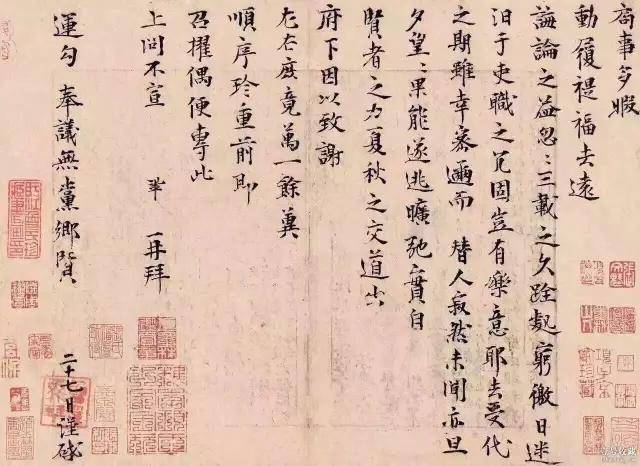 局事多暇
動履禔福去遠
誨論之益忽忽三載之久跧處窮徼日迷
汩于吏職之冗固豈有樂意耶去受代
之期雖幸密邇而替人寂然未聞亦旦
夕望望果能遂逃曠弛實自
賢者之力夏秋之交道出
府下因以致謝
左右庶竟萬一餘冀
順序珍重前即
召擢偶便專此
上問不宣 鞏 再拜
運勾 奉議無黨鄉賢 二十七日謹啟